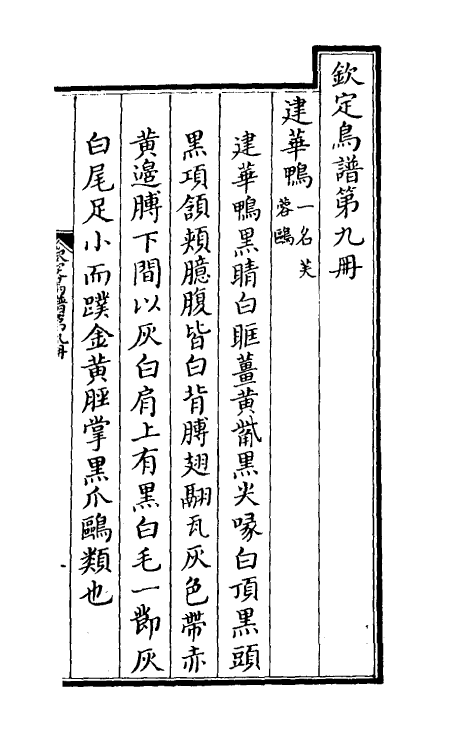 欽定鳥譜第九冊
建華鴨一名芙
蓉鷗
建華鴨黑睛白眶薑黃觜黑尖喙白頂黑頭
黑項頷頰臆腹皆白背膊翅翮瓦灰色帶赤
黃邊膊下間以灰白肩上有黑白毛一節灰
白尾足小而蹼金黃脛掌黑爪鷗類也